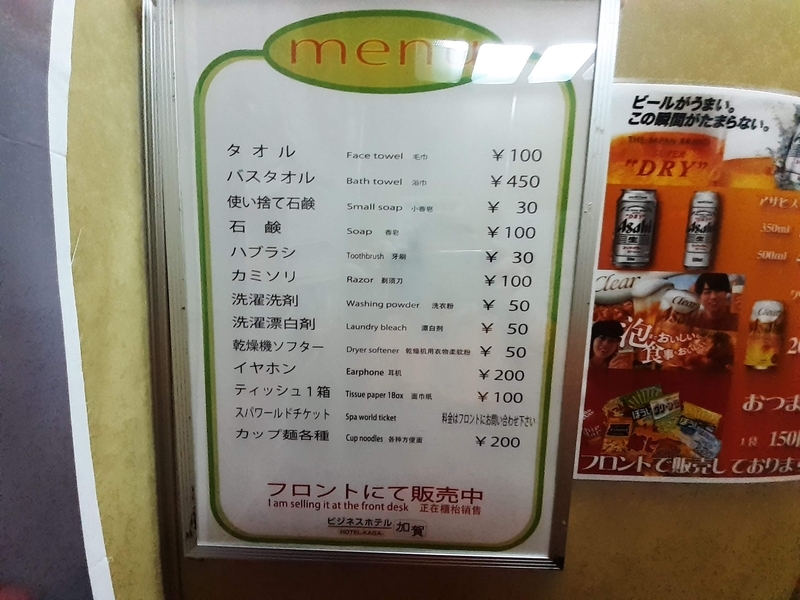 menu
タオル Face towel 毛巾 ¥100
バスタオル Bath towel 浴巾 ¥450
使い捨て石鹸 Small soap 小香皂 ¥ 30
石 鹸 Soap 香皂 ¥100
ハブラシ Toothbrush 牙刷 ¥ 30
カミソリ Razor 剃须刀 ¥100
洗濯洗剤 Washing powder 洗衣粉 ¥ 50
洗濯漂白剤 Laundry bleach 漂白剂 ¥ 50
乾燥機ソフター Dryer softener 乾燥机用衣物柔软纷 ¥ 50
イヤホン Earphone 耳机 ¥200
ティッシュ1箱 Tissue paper 1Box 面巾纸 ¥100
スパワールドチケット Spa world ticket 料金はフロントにお問い合わせ下さい
カップ麺各種 Cup noodles 各种方便面 ¥200
フロントにて販売中
I am selling it at the front desk 正在櫃枱销售
ビジネスホテル 加賀
HOTEL-KAGA
ビールがうまい。
この瞬間がたまらない。
THE JAPAN BRAND
SUPER
"DRY"
Asahi
生
Asahi
生
アサヒス
350ml
500ml
Clear
Clear
泡においしい
食事においしい
おつま
1袋 150円
フロントで販売しておりま